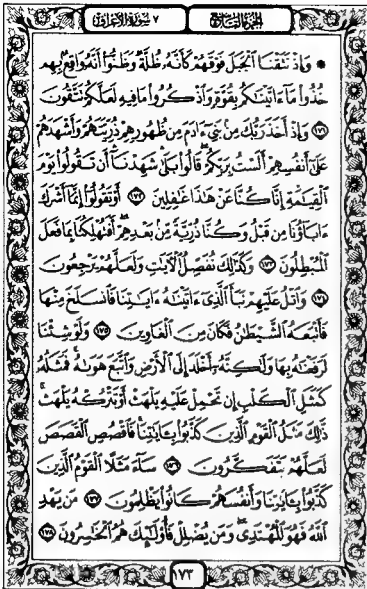 الجزء التاسع ٧ سورة الأعراف
۞ وَإِذْ نَتَقْنَا ٱلْجَبَلَ فَوْقَهُمْ كَأَنَّهُۥ ظُلَّةٌ وَظَنُّوٓا۟ أَنَّهُۥ وَاقِعٌۢ بِهِمْ
خُذُوا۟ مَآ ءَاتَيْنَـٰكُم بِقُوَّةٍ وَٱذْكُرُوا۟ مَا فِيهِ لَعَلَّكُمْ تَتَّقُونَ
﴿١٧١﴾ وَإِذْ أَخَذَ رَبُّكَ مِنۢ بَنِىٓ ءَادَمَ مِن ظُهُورِهِمْ ذُرِّيَّتَهُمْ وَأَشْهَدَهُمْ
عَلَىٰٓ أَنفُسِهِمْ أَلَسْتُ بِرَبِّكُمْ ۖ قَالُوا۟ بَلَىٰ ۛ شَهِدْنَآ ۛ أَن تَقُولُوا۟ يَوْمَ
ٱلْقِيَـٰمَةِ إِنَّا كُنَّا عَنْ هَـٰذَا غَـٰفِلِينَ ﴿١٧٢﴾ أَوْ تَقُولُوٓا۟ إِنَّمَآ أَشْرَكَ
ءَابَآؤُنَا مِن قَبْلُ وَكُنَّا ذُرِّيَّةً مِّنۢ بَعْدِهِمْ ۖ أَفَتُهْلِكُنَا بِمَا فَعَلَ
ٱلْمُبْطِلُونَ ﴿١٧٣﴾ وَكَذَٰلِكَ نُفَصِّلُ ٱلْـَٔايَـٰتِ وَلَعَلَّهُمْ يَرْجِعُونَ
﴿١٧٤﴾ وَٱتْلُ عَلَيْهِمْ نَبَأَ ٱلَّذِىٓ ءَاتَيْنَـٰهُ ءَايَـٰتِنَا فَٱنسَلَخَ مِنْهَا
فَأَتْبَعَهُ ٱلشَّيْطَـٰنُ فَكَانَ مِنَ ٱلْغَاوِينَ ﴿١٧٥﴾ وَلَوْ شِئْنَا
لَرَفَعْنَـٰهُ بِهَا وَلَـٰكِنَّهُۥٓ أَخْلَدَ إِلَى ٱلْأَرْضِ وَٱتَّبَعَ هَوَىٰهُ ۚ فَمَثَلُهُۥ
كَمَثَلِ ٱلْكَلْبِ إِن تَحْمِلْ عَلَيْهِ يَلْهَثْ أَوْ تَتْرُكْهُ يَلْهَث ۚ
ذَّٰلِكَ مَثَلُ ٱلْقَوْمِ ٱلَّذِينَ كَذَّبُوا۟ بِـَٔايَـٰتِنَا ۚ فَٱقْصُصِ ٱلْقَصَصَ
لَعَلَّهُمْ يَتَفَكَّرُونَ ﴿١٧٦﴾ سَآءَ مَثَلًا ٱلْقَوْمُ ٱلَّذِينَ
كَذَّبُوا۟ بِـَٔايَـٰتِنَا وَأَنفُسَهُمْ كَانُوا۟ يَظْلِمُونَ ﴿١٧٧﴾ مَن يَهْدِ
ٱللَّهُ فَهُوَ ٱلْمُهْتَدِى ۖ وَمَن يُضْلِلْ فَأُو۟لَـٰٓئِكَ هُمُ ٱلْخَـٰسِرُونَ ﴿١٧٨﴾
١٧٣